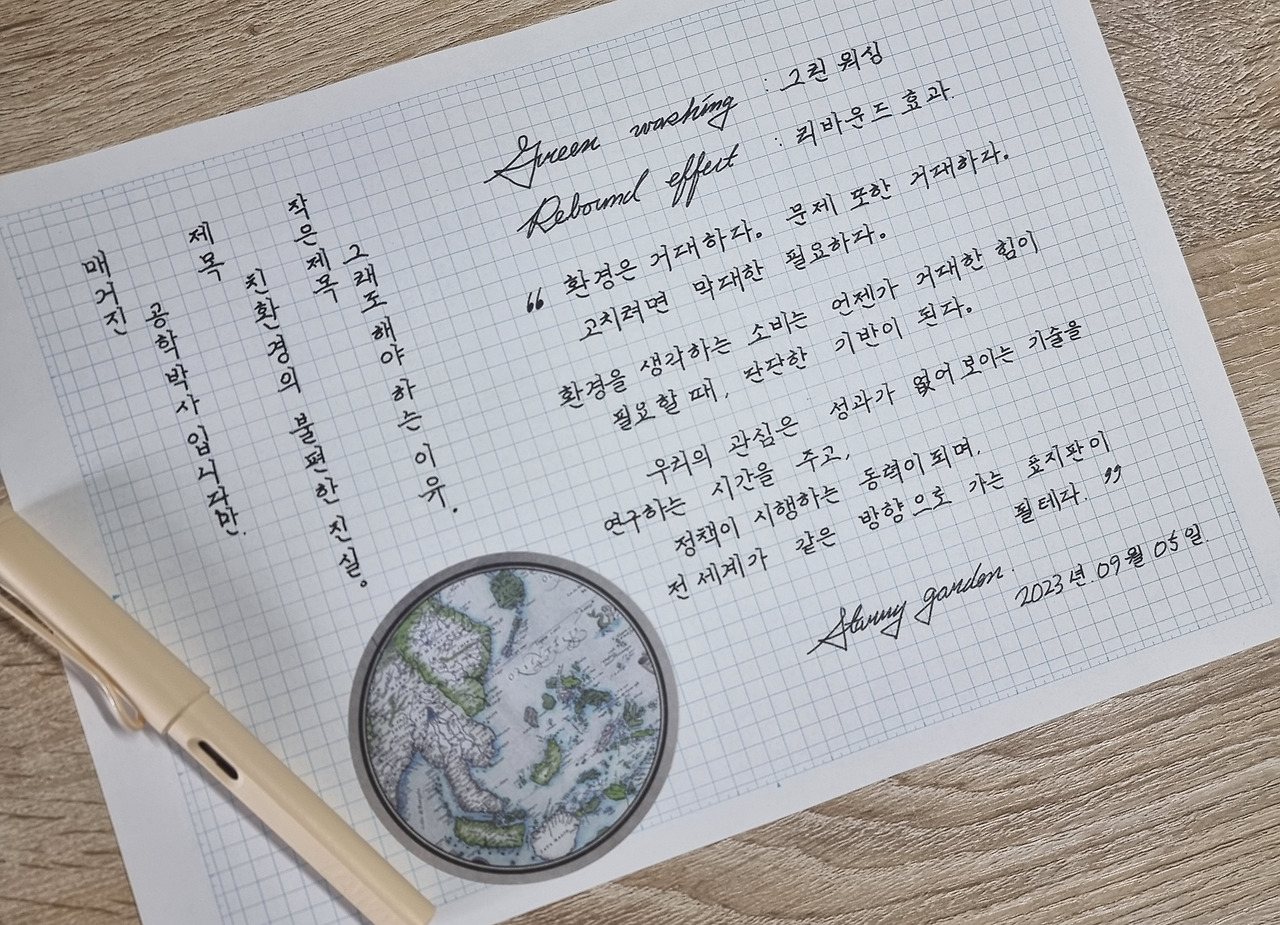 Green washing : 그린 워싱
Rebound effect : 리바운드 효과.
“ 환경은 거대하다. 문제 또한 거대하다.
고치려면 막대한 필요하다.
환경을 생각하는 소비는 언젠가 거대한 힘이
필요할 때, 단단한 기반이 된다.
우리의 관심은 성과가 없어 보이는 기술을
연구하는 시간을 주고,
정책이 시행하는 동력이 되며,
전 세계가 같은 방향으로 가는 표지판이
될테다. ”
Starry garden.
2023년 09월 05일.
매거진
공학박사입니다만.
제목
친환경의 불편한 진실.
작은제목
그래도해야하는이유.